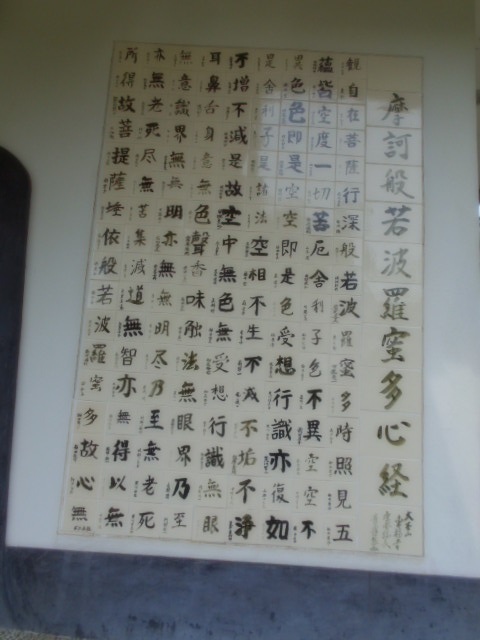 摩訶般若波羅蜜多心経
観自在菩薩行深般若波羅蜜多時照見五
蘊皆空度一切苦厄舎利子色不異空空不
異色色即是空空即是色受想行識亦復如
是舎利子是諸法空相不生不滅不垢不浄
不増不減是故空中無色無受想行識無眼
耳鼻舌身意無色聲香味触法無眼界乃至
無意識界無無明亦無無明尽乃至無老死
亦無老死尽無苦集滅道無智亦無得以無
所得故菩提薩埵依般若波羅蜜多故心無